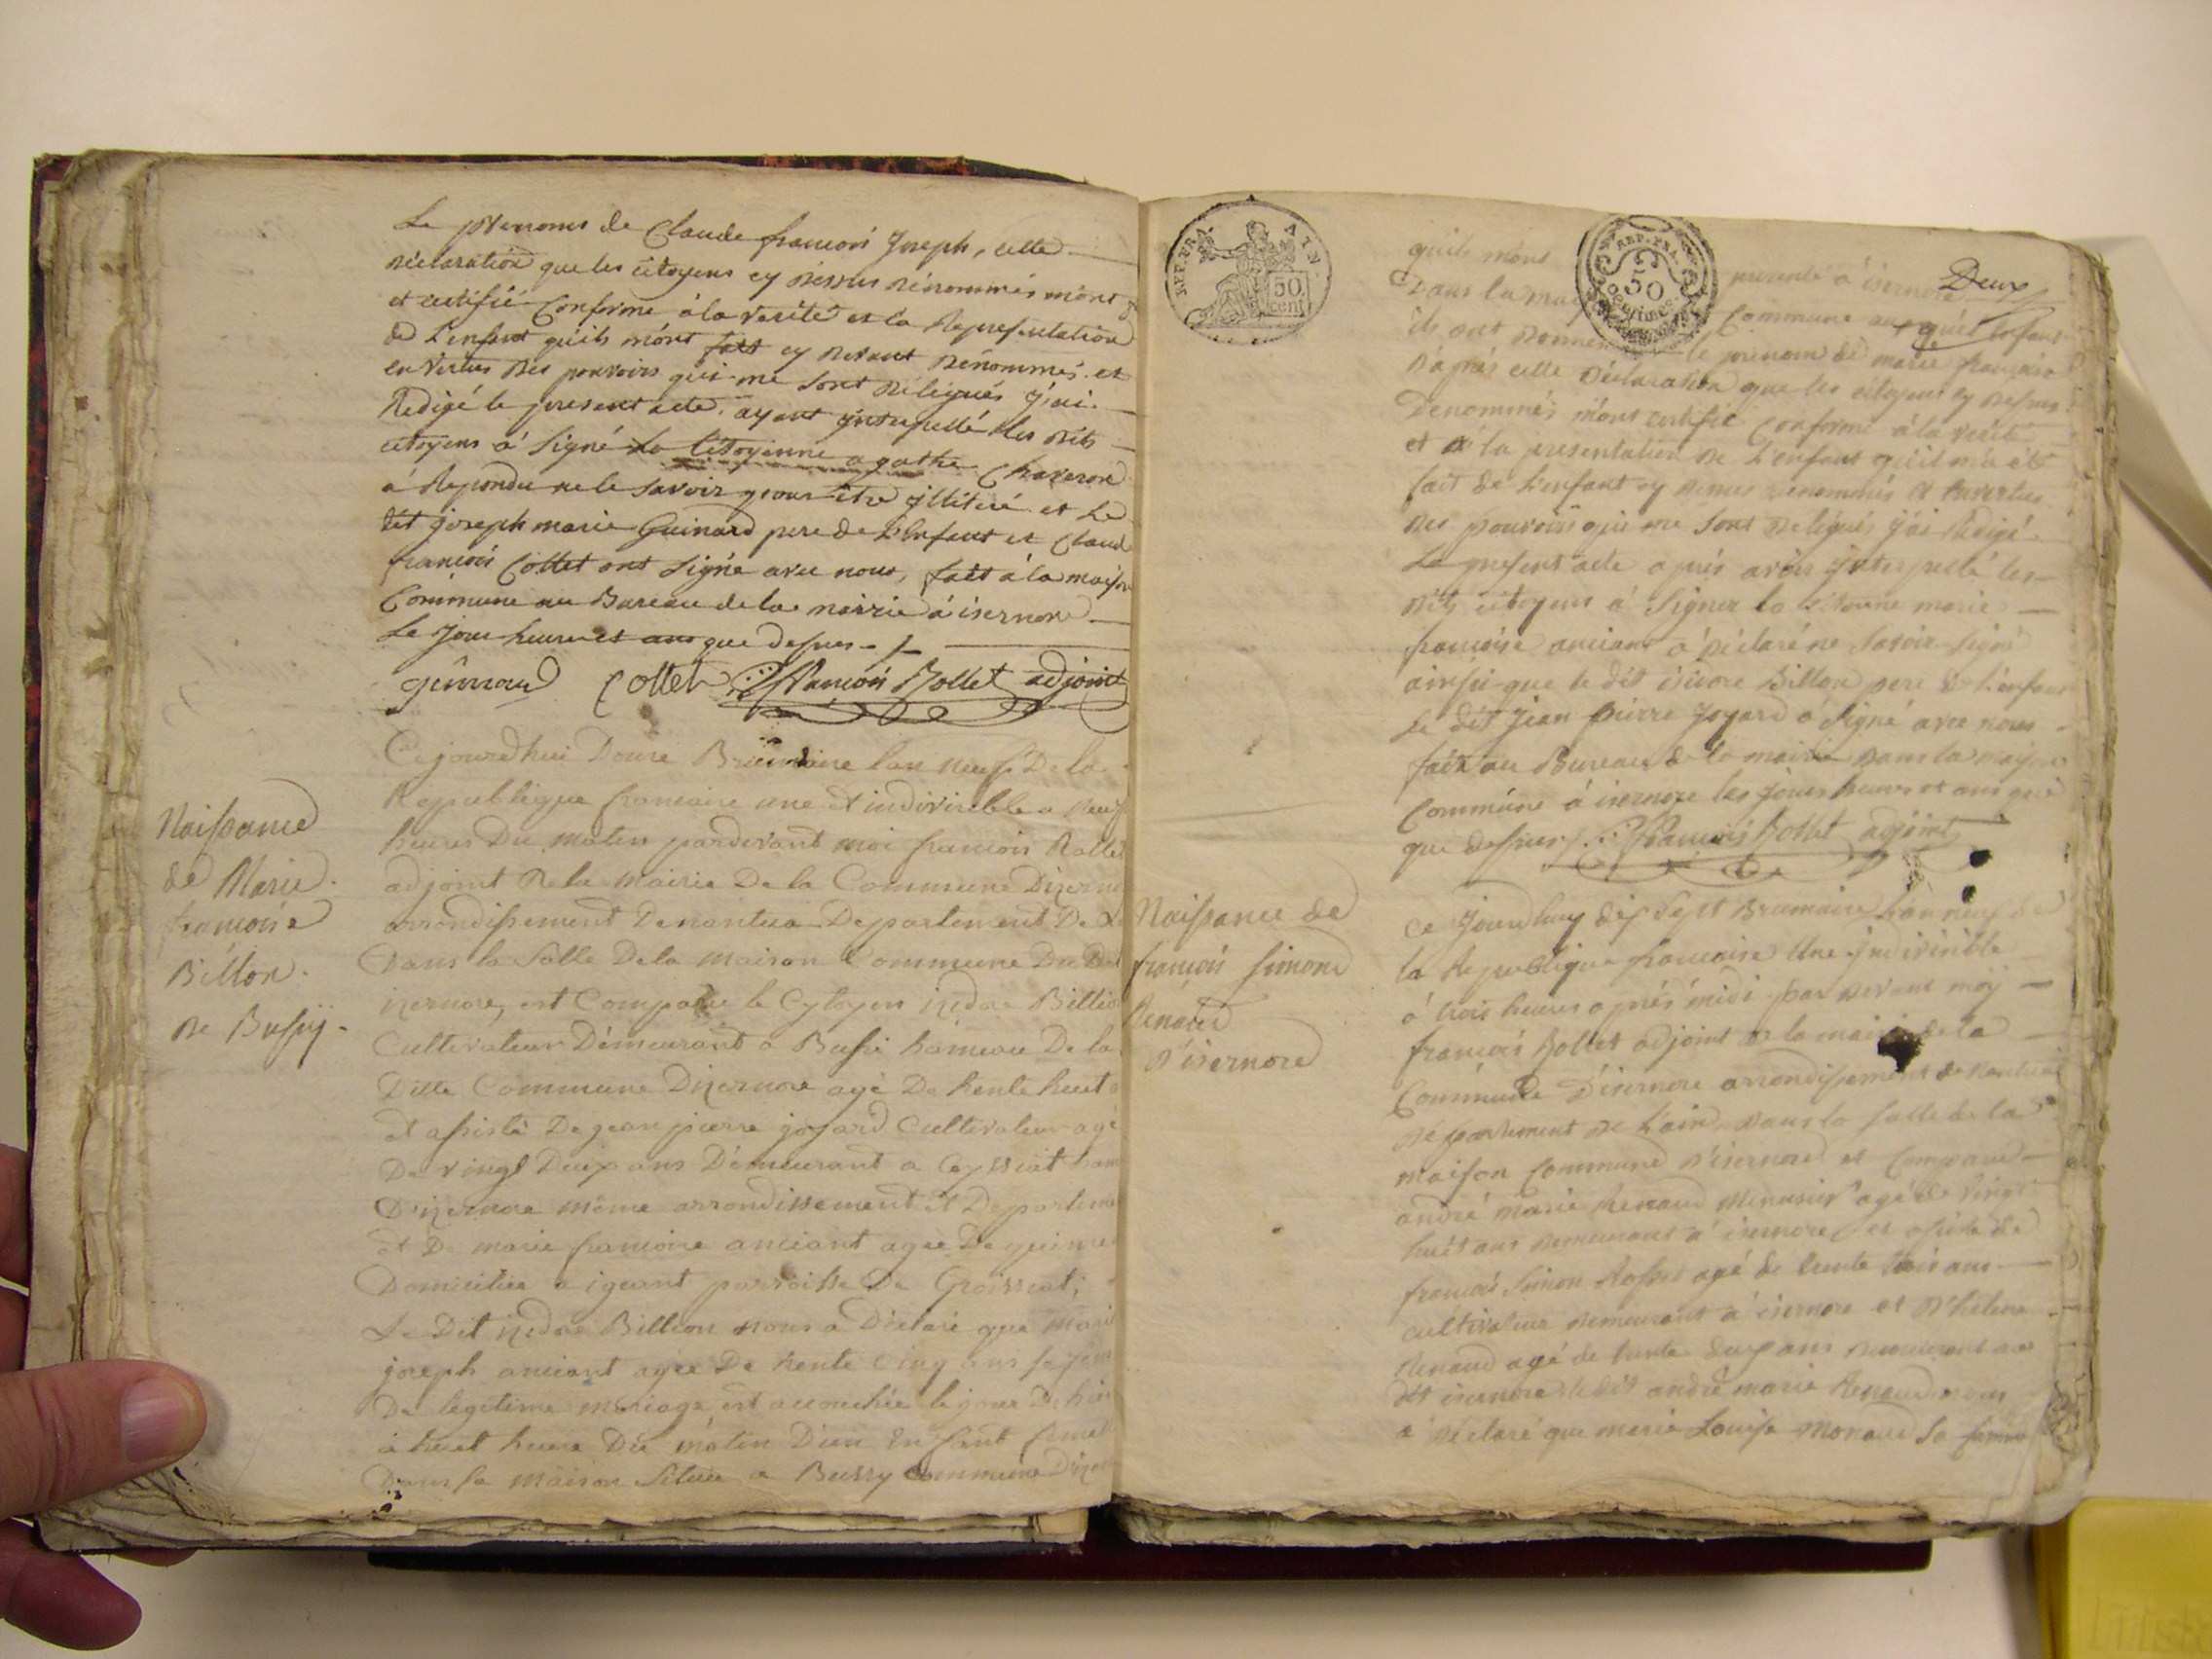 Le prenoms de Claude francois Joseph, cette
déclaration que les citoyens cy dessus dénommés m'ont
et certifié Conforme à la verité et la Représentation
de L'enfant qu'ils m'ont fait cy devant dénommés et
en Vertus des pouvoirs qui me sont délégués j'ai
Redigé le present acte, ayant interpellé les dits
citoyens à signé La Citoyenne agathe Chaveron
à Repondu ne le savoir pour être illitéré et Le
dit joseph marie Guinard pere de L'enfant et Claude
francois Collet ont signé avec nous, fait à la maison
Commune au Bureau de la mairie à isernore
Le Jour heure et an que dessus
Collet francois Rollet adjoint
Naissance
de Marie
francoise
Billon
de Bussy
Cejourdhui Douze Brumaire lan neuf De la
Republique francaise une et indivisible a neuf
heures Du matin pardevant moi francois Rollet
adjoint De la Mairie De la Commune Dizernore
arrondissement De nantua Departement De
Dans la Salle De la maison Commune Du
izernore, est Comparu le Cytoyen izidore Billion
Cultivateur Demeurant a Bussi hameau De la
Ditte Commune Dizernore agé De trente huit
et assisté De jean pierre joyard Cultivateur agé
De vingt Deux ans Demeurant a Ceyssiat ham
D'izernore même arrondissement et Departeme
et De marie francoise anciant agée De
Domiciliée a igeant parroisse De Groissiat,
Le Dit izidore Billion nous a Déclaré que Mari
joseph anciant agée De trente Cinq ans sa fem
De legitime mariage est accouchée le jour De hier
a huit heure Du matin D'un Enfant femel
Dans sa maison Située a Bussy Commune Dizer
REP. FRA.
AIN.
50
cent
REP. FRA.
50
centimes
Deux
qu'ils m'ont presenté à isernore
Dans la mai Commune auquel Enfant
ils ont donné le prenom de marie francoise
D'après cette déclaration que les citoyens cy dessus
Denommés m'ont certifié Conforme à la verité
et à la presentation de L'enfant qu'il m'a été
fait de L'enfant cy dessus denommés et En vertus
des pouvoirs qui me sont delegués j'ai Redigé
Le present acte après avoir interpellé les
dits citoyens à Signer la Citoienne marie
francoise anciant a déclaré ne Savoir Signé
ainsi que le dit isidore Billon pere de L'enfant
Le dit Jean pierre Joyard a Signé avec nous
fait au Bureau de la mairie dans la maison
Commune à isernore les jours heures et ans que
que dessus francois Rollet adjoint
Naissance de
francois simond
Renaud
d'isernore
Ce Jourdhuy dix Sept Brumaire L'an neuf de
la Republique francaise Une Indivisible
à trois heures après midi par devant moy
francois Rollet adjoint de la mairie de la
Commune D'isernore arrondissement de nantua
département de L'ain, dans la salle de la
maison Commune d'isernore est Comparu
andré marie Renaud Menusier agé de vingt
huit ans demeurant à isernore et assisté de
francois Simon agé de trente trois ans
cultivateur demeurant à isernore et d'helene
Renaud agé de trente deux ans demeurant au
dit isernore le dit andré marie Renaud nous
a déclaré que marie Louise Monard sa femme